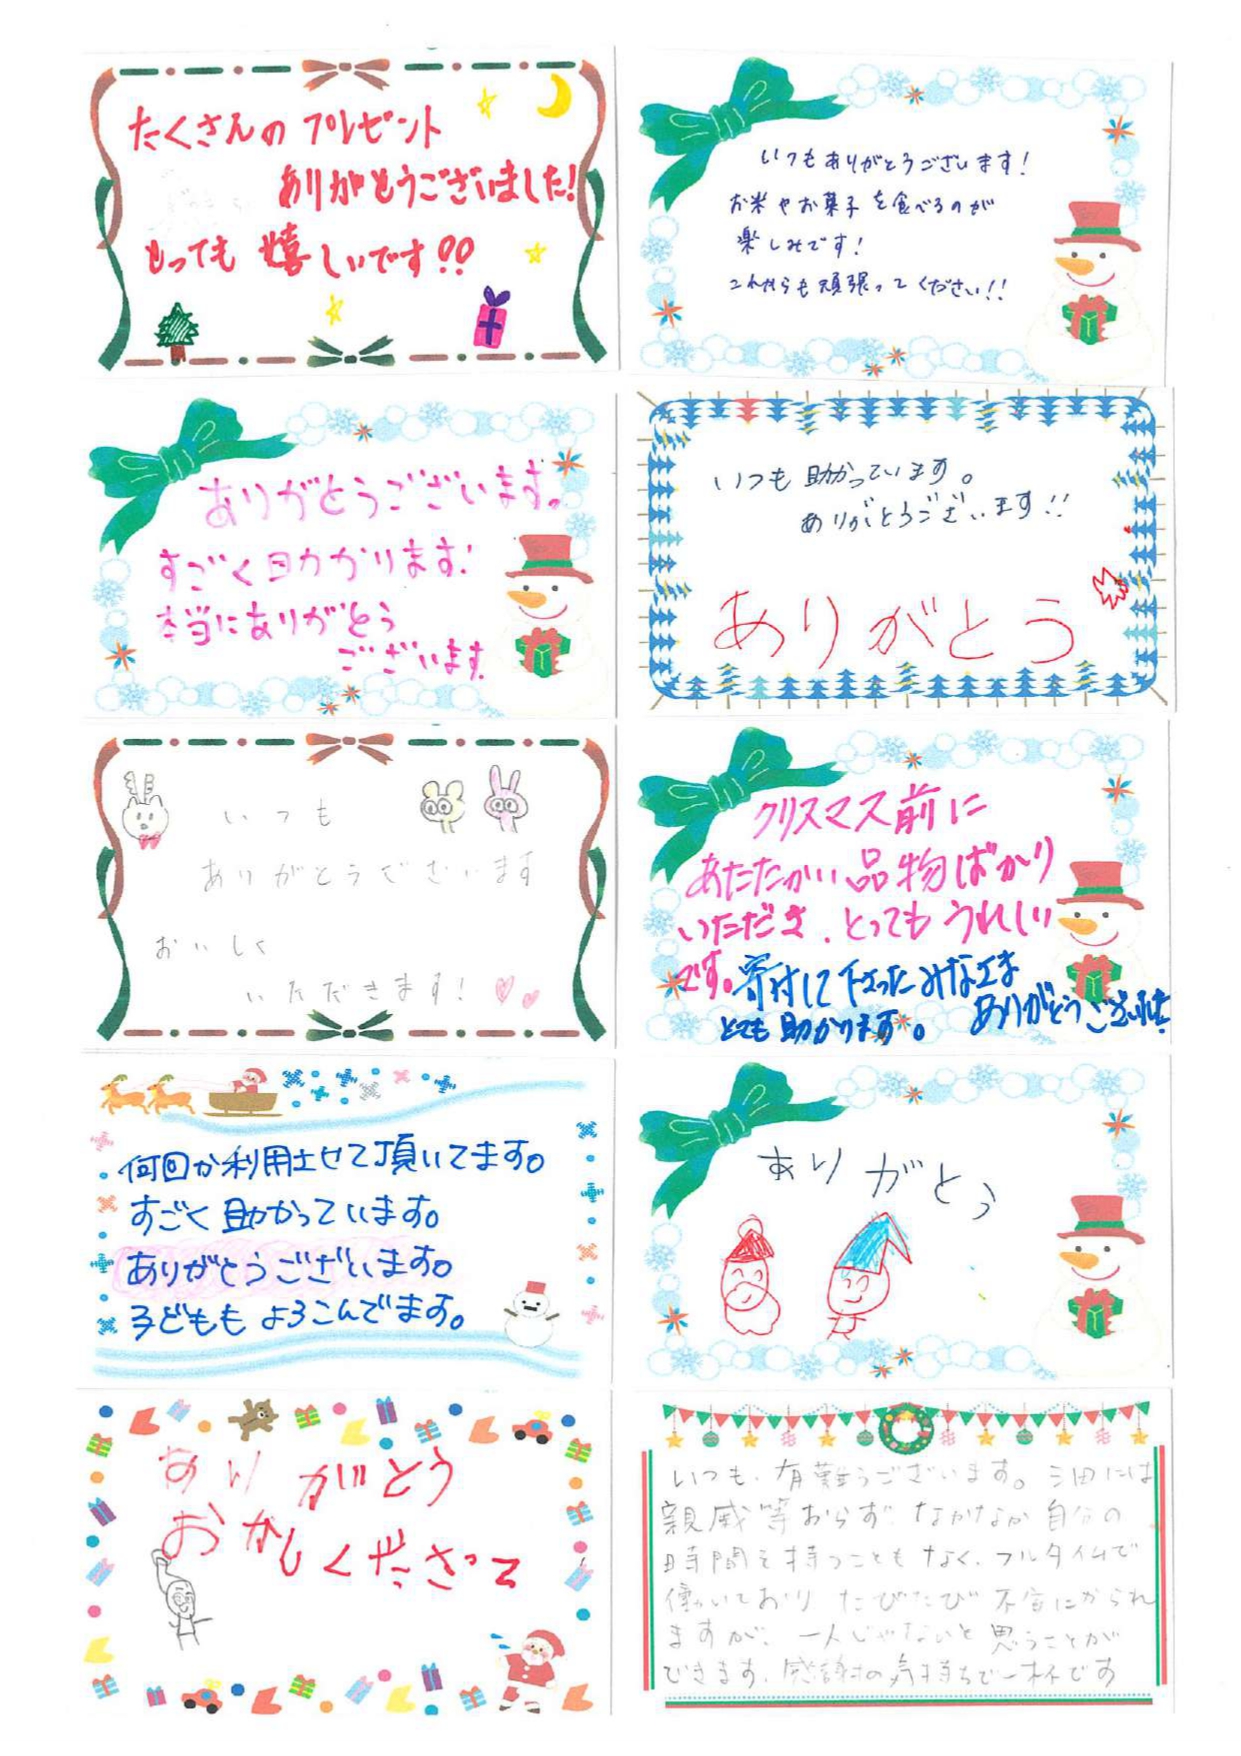 たくさんの プレゼント
ありがとうございました!
とっても 嬉しいです!!
いつもありがとうございます!
お米やお菓子を食べるのが
楽しみです!
これからも頑張ってください!!
ありがとうございます。
すごく助かります!
本当にありがとう
ございます。
いつも助かっています。
ありがとうございます!!
ありがとう
いつも
ありがとうございます
おいしく
いただきます!
クリスマス前に
あたたかい品物ばかり
いただき、とってもうれしい
です。寄付して下さったみなさま
とても助かります。 ありがとうございました
何回か利用させて頂いてます。
すごく助かっています。
ありがとうございます。
子どももよろこんでます。
ありがとう
ありがとう
おかしくださって
いつも、有難うございます。三田には
親戚等おらず、なかなか自分の
時間を持つこともなく、フルタイムで
働いており たびたび 不安にかられ
ますが、一人じゃないと思うことが
できます。感謝の気持ちで一杯です